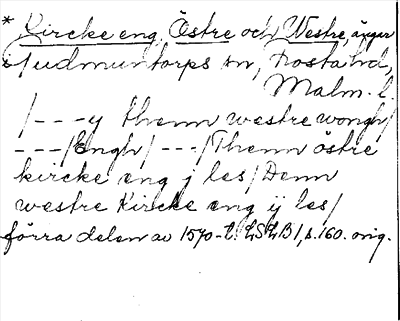 * Kircke eng, Östre och Westre, ängar
i Gudmuntorps sn, Frosta hd,
Malm. l.
/---y thenn westre wongh/
---/Engh/---/Thenn östre
kircke eng j les/Denn
westre Kircke eng ÿ les/
förra delen av 1570-t. LSLB 1, s. 160. orig.